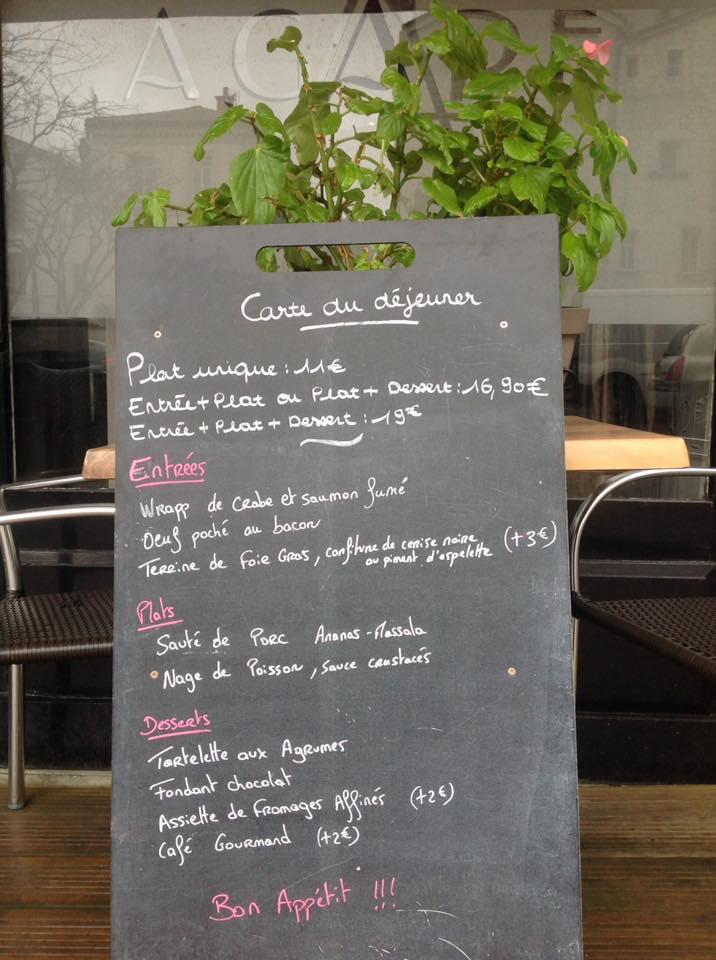 ACAPE
Carte du déjeuner
Plat unique : 11€
Entrée + Plat ou Plat + Dessert : 16,90€
Entrée + Plat + Dessert : 19€
Entrées
Wrapp de Crabe et saumon fumé
Oeuf poché au bacon
Terrine de Foie Gras, confiture de cerise noire au piment d'espelette (+3€)
Plats
Sauté de Porc Ananas-Massala
Nage de Poisson, sauce crustacés
Desserts
Tartelette aux Agrumes
Fondant chocolat
Assiette de Fromages Affinés (+2€)
Café Gourmand (+2€)
Bon Appétit !!!